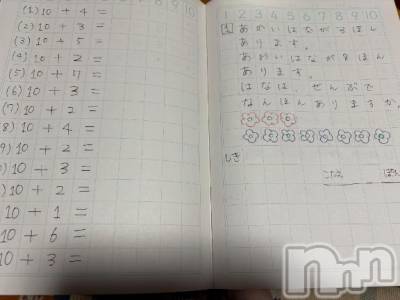 (1) 10 + 4 =
(2) 10 + 3 =
(3) 10 + 5 =
(4) 10 + 2 =
(5) 10 + 7 =
(6) 10 + 3 =
(7) 10 + 2 =
8) 10 + 4 =
9) 10 + 2 =
) 10 + 3 =
) 10 + 2 =
10 + 1 =
10 + 6 =
10 + 3 =
1 2 3 4 5 6 7 8 9 10
1 あかいはなが3ぼん
あります。
あおいはなが8ほん
あります。
はなは、ぜんぶで
なんほんありますか。
しき
こたえ ほん